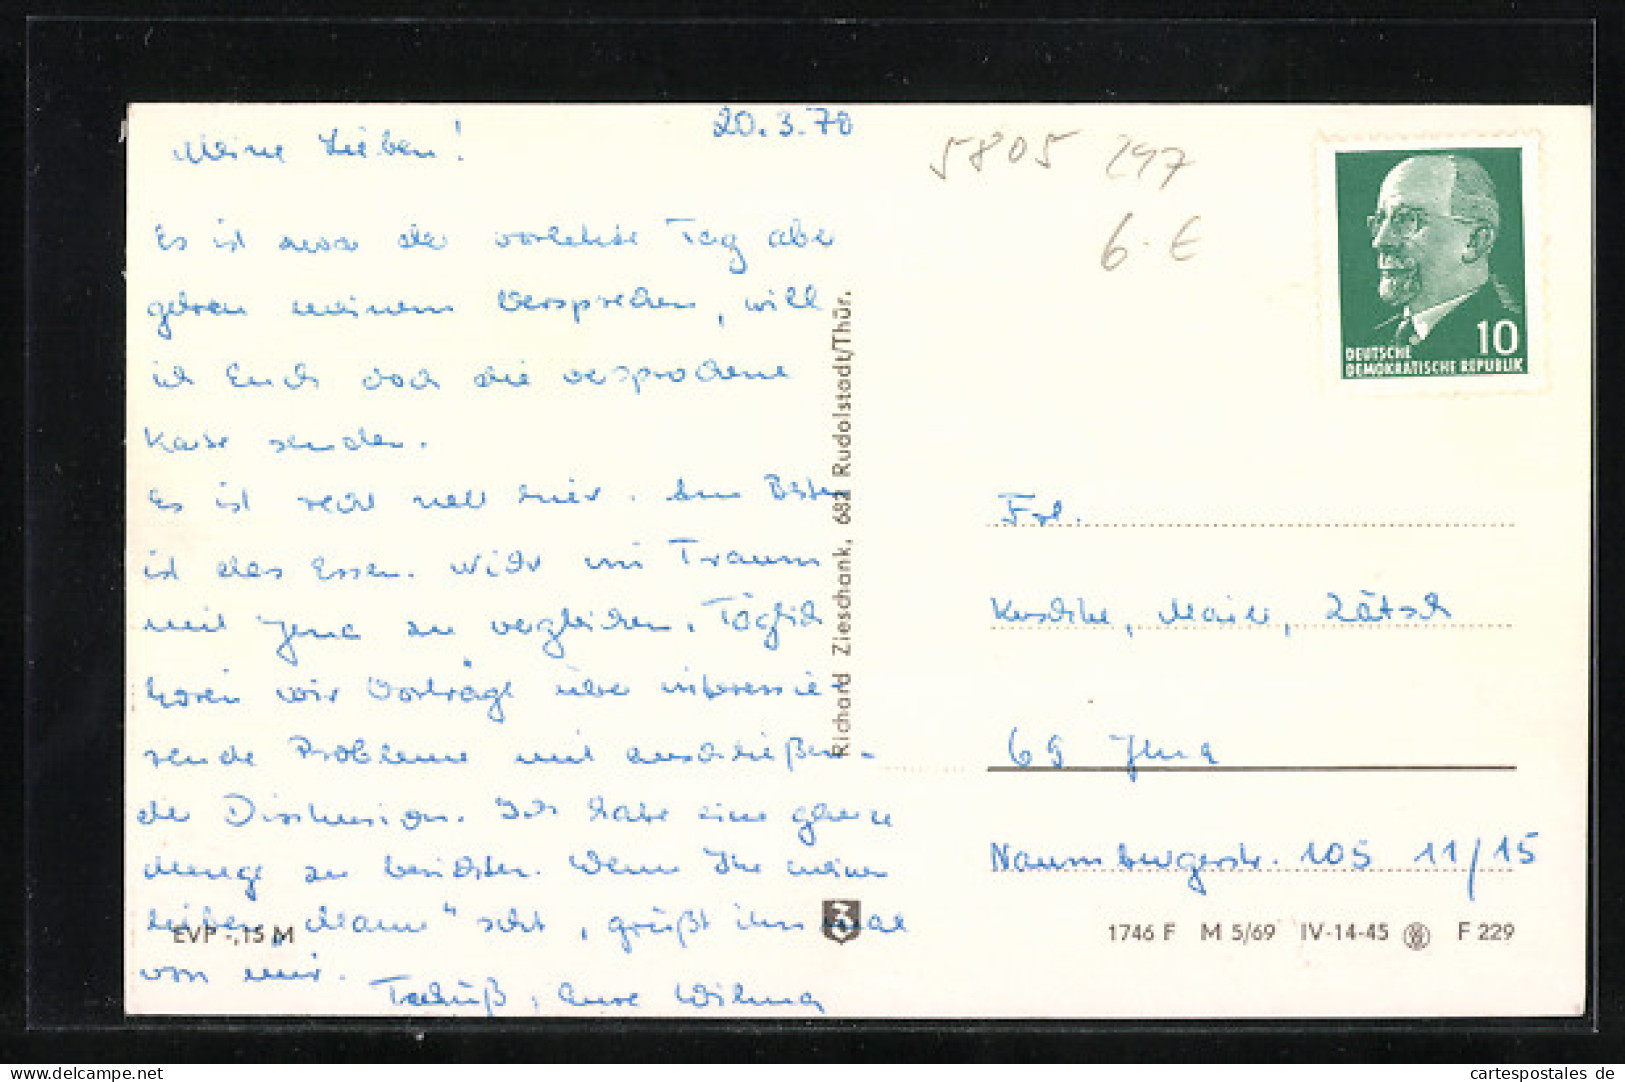 20.3.70
Meine Lieben!
Es ist zwar der vorletzte Tag aber
getreu meinem Versprechen, will
ich Euch doch die versprochene
Karte senden.
Es ist recht nett hier. Am Besten
ist das Essen. Nicht im Traum
mit Jena zu vergleichen. Täglich
hören wir Vorträge über interessie-
rende Probleme mit anschließen-
der Diskussion. Ich habe eine ganze
Menge zu berichten. Wenn Ihr meinen
lieben "Mann" seht, grüßt ihn mal
von mir.
Tschüß, Eure Wilma
EVP -,15 M
Richard Zieschank, 682 Rudolstadt/Thür.
5805 247
6.- €
10
DEUTSCHE
DEMOKRATISCHE REPUBLIK
Frl.
69 Jena
Naumburgerstr. 105 11/15
1746 F M 5/69 IV-14-45 F 229
www.cartespostales.eu
cartespostales de